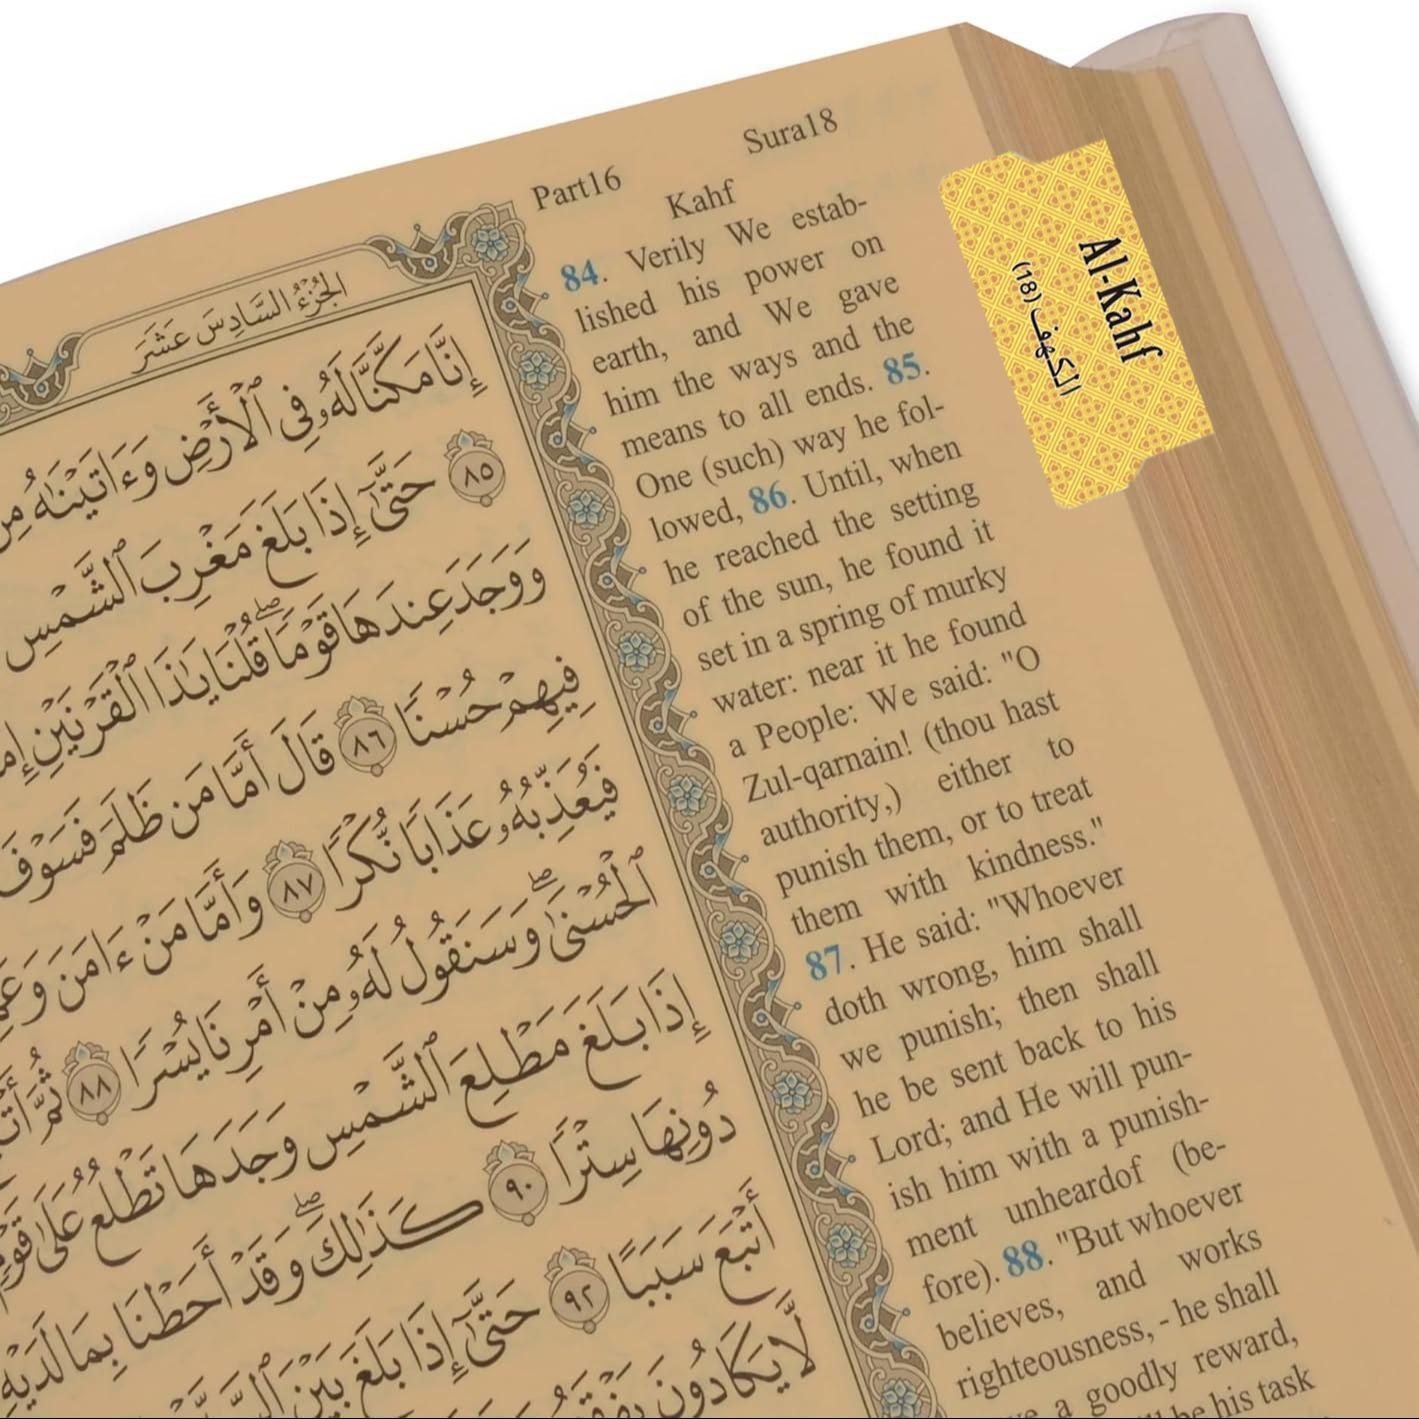 Part16
Sura18
Kahf
84. Verily We estab-
lished his power on
earth, and We gave
him the ways and the
means to all ends. 85.
One (such) way he fol-
lowed, 86. Until, when
he reached the setting
of the sun, he found it
set in a spring of murky
water: near it he found
a People: We said: "O
Zul-qarnain! (thou hast
authority,) either to
punish them, or to treat
them with kindness."
87. He said: "Whoever
doth wrong, him shall
we punish; then shall
he be sent back to his
Lord; and He will pun-
ish him with a punish-
ment unheardof (be-
fore). 88. "But whoever
believes, and works
righteousness, - he shall
a goodly reward,
be his task
Al-Kahf
الكهف (18)
الجُزْءُ السَّادِسَ عَشَرَ
إِنَّا مَكَّنَّا لَهُۥ فِى ٱلْأَرْضِ وَءَاتَيْنَٰهُ
٨٥ حَتَّىٰٓ إِذَا بَلَغَ مَغْرِبَ ٱلشَّمْسِ
وَوَجَدَ عِندَهَا قَوْمًا ۖ قُلْنَا يَٰذَا ٱلْقَرْنَيْنِ
فِيهِمْ حُسْنًا ٨٦ قَالَ أَمَّا مَن ظَلَمَ فَسَوْفَ
فَيُعَذِّبُهُۥ عَذَابًا نُّكْرًا ٨٧ وَأَمَّا مَنْ ءَامَنَ
ٱلْحُسْنَىٰ ۖ وَسَنَقُولُ لَهُۥ مِنْ أَمْرِنَا يُسْرًا ٨٨ ثُمَّ
إِذَا بَلَغَ مَطْلِعَ ٱلشَّمْسِ وَجَدَهَا تَطْلُعُ عَلَىٰ
دُونِهَا سِتْرًا ٩٠ كَذَٰلِكَ ۖ وَقَدْ أَحَطْنَا بِمَا لَدَيْهِ
أَتْبَعَ سَبَبًا ٩٢ حَتَّىٰٓ إِذَا بَلَغَ بَيْنَ
لَّا يَكَادُونَ